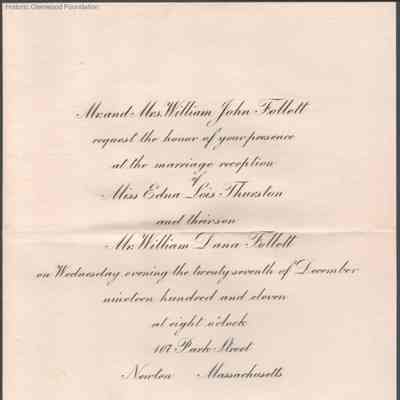 Historic Glenwood Foundation
Mr. and Mrs. William John Follett
request the honor of your presence
at the marriage reception
of
Miss Edna Lois Thurston
and their son
Mr. William Dana Follett
on Wednesday evening the twenty seventh of December
nineteen hundred and eleven
at eight o'clock
107 Park Street
Newton Massachusetts